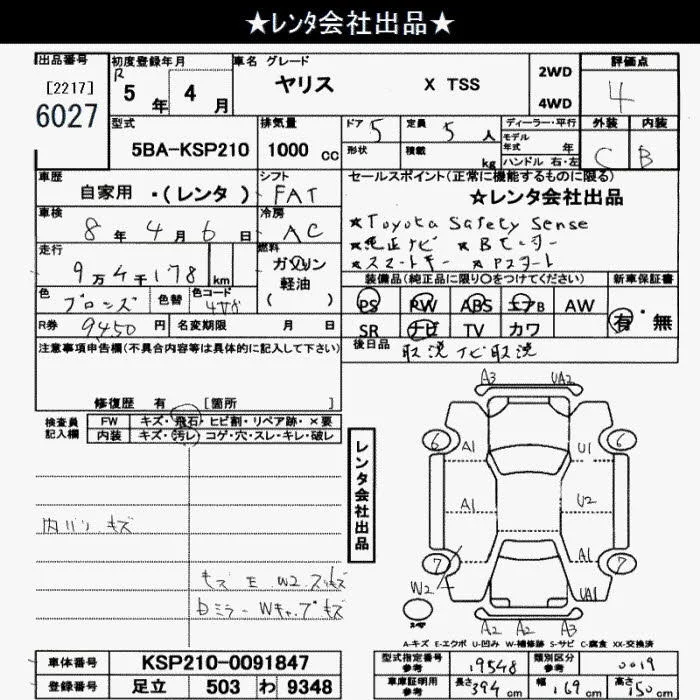 ★レンタ会社出品★
出品番号
[2217]
6027
初度登録年月
R
5 年 4 月
車名 グレード
ヤリス X TSS
2WD
4WD
評価点
4
外装 内装
C B
型式
5BA-KSP210
排気量
1000 cc
ドア 5
定員 5 人
形状
積載 kg
ディーラー・平行
モデル年式 年
ハンドル 右・左
車歴
自家用 ・(レンタ )
シフト
FAT
車検
8 年 4 月 6 日
冷房
AC
走行
9万4千178 km
燃料
ガソリン
軽油
( )
色
ブロンズ
色替
色コード
R券 9450 円
名変期限 月 日
セールスポイント(正常に機能するものに限る)
★レンタ会社出品
★Toyota Safety Sense
★純正ナビ ★Bモーター
★スマートキー ★Pスタート
装備品(純正品に限り○をつけてください)
PS PW ABS エアB AW
SR ナビ TV カワ
新車保証書
有・無
後日品 取説 ナビ取説
注意事項申告欄(不具合内容等は具体的に記入して下さい)
修復歴 有 [箇所 ]
検査員記入欄
FW キズ・飛石・ヒビ割・リペア跡・×要
内装 キズ・汚レ・コゲ・穴・スレ・キレ・破レ
内ハリ キズ
レンタ会社出品
A3 UA2
6 6
A1 U1
A1 U2
7 A1 7
W2 UA1
A2 A2 A3
A-キズ E-エクボ U-凹み W-補修跡 S-サビ C-腐食 XX-交換済
車体番号 KSP210-0091847
登録番号 足立 503 わ 9348
型式指定番号参考 19548
類別区分参考 0019
車庫証明用参考 長さ 394 cm 幅 169 cm 高さ 150 cm